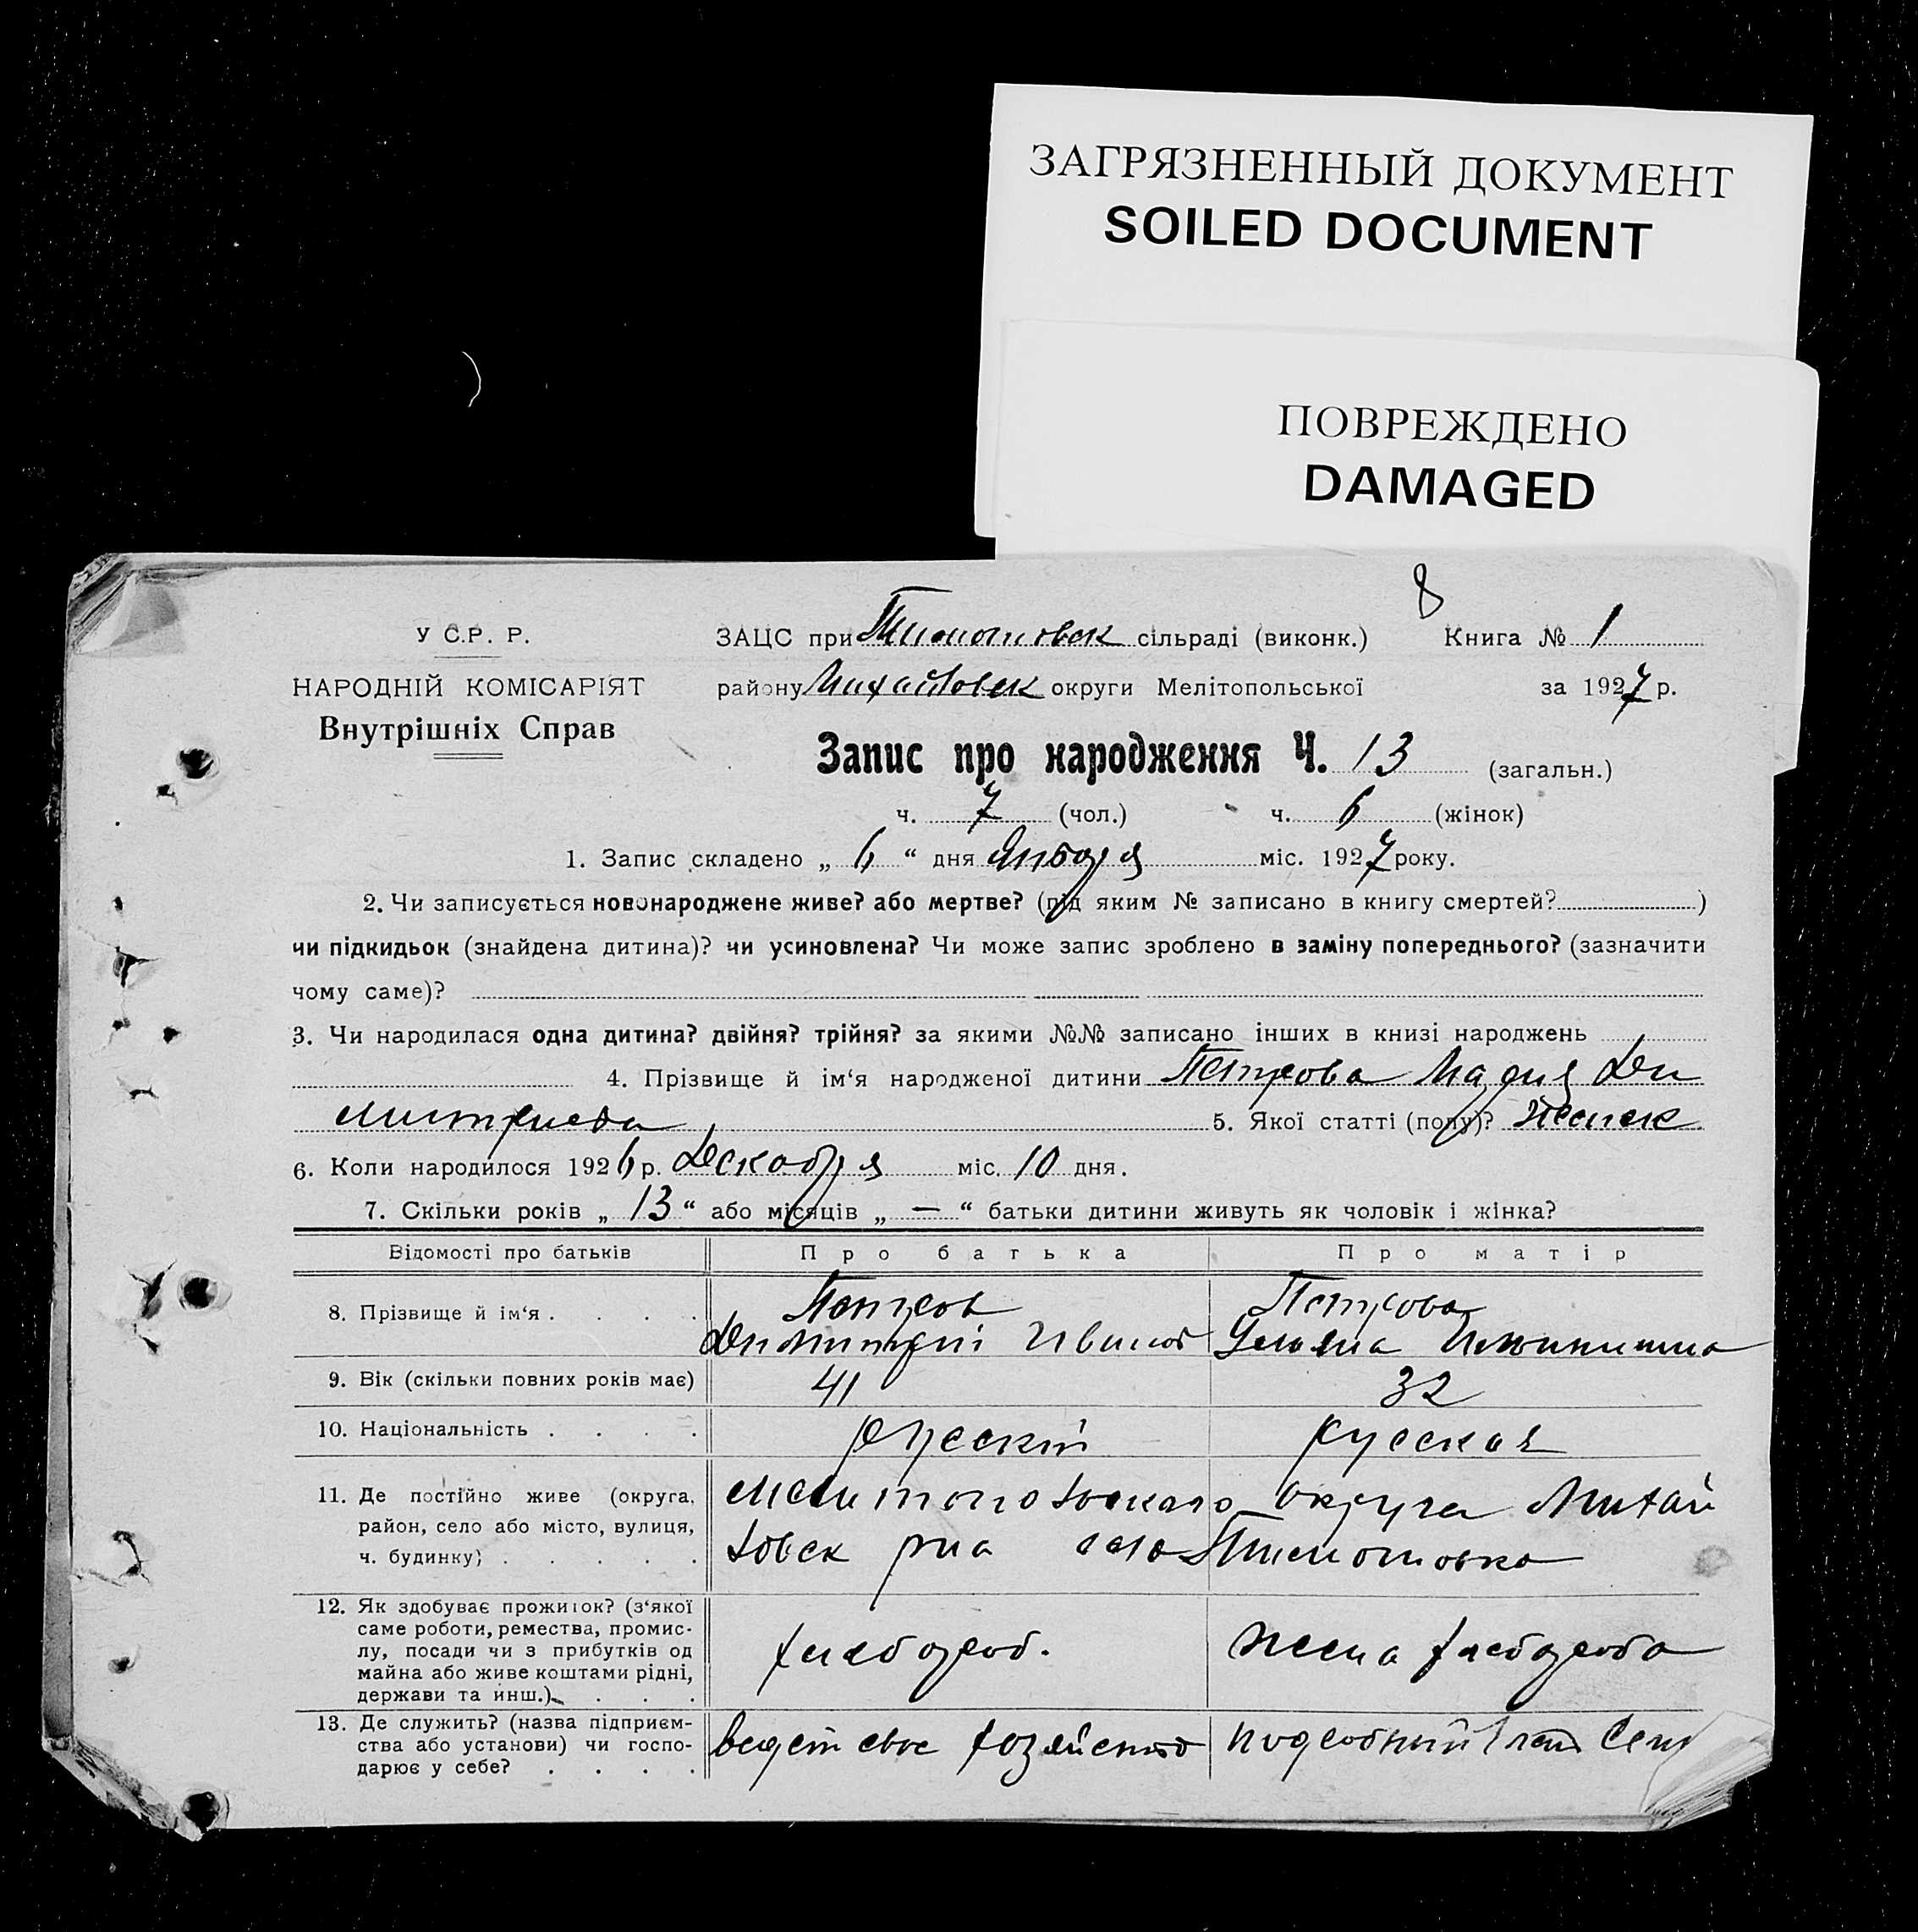 ЗАГРЯЗНЕННЫЙ ДОКУМЕНТ
SOILED DOCUMENT
ПОВРЕЖДЕНО
DAMAGED
8
У С.Р. Р.
НАРОДНІЙ КОМІСАРІЯТ
Внутрішніх Справ
ЗАЦС при Тимошовск сільраді (виконк.) Книга № 1
району Михайловск округи Мелітопольської за 1927 р.
Запис про народження Ч. 13 (загальн.)
ч. 7 (чол.) ч. 6 (жінок)
1. Запис складено „ 6 “ дня Января міс. 1927 року.
2. Чи записується новонароджене живе? або мертве? (під яким № записано в книгу смертей? )
чи підкидьок (знайдена дитина)? чи усиновлена? Чи може запис зроблено в заміну попереднього? (зазначити
чому саме)?
3. Чи народилася одна дитина? двійня? трійня? за якими №№ записано інших в книзі народжень
4. Прізвище й ім‘я народженої дитини Петрова Мария Ди
митриева 5. Якої статті (полу)? Женск
6. Коли народилося 1926 р. Декабря міс. 10 дня.
7. Скільки років „ 13 “ або місяців „ — “ батьки дитини живуть як чоловік і жінка?
Відомості про батьків Про батька Про матір
8. Прізвище й ім‘я . . . . Петров Петрова
Димитрій Иванов Ульяна
9. Вік (скільки повних років має) 41 32
10. Національність . . . . Русскій русская
11. Де постійно живе (округа, район, село або місто, вулиця, ч. будинку) . . . . . Мелитопольскаго округа Михай
ловск р-на село Тимошовка
12. Як здобуває прожиток? (з‘якої
саме роботи, ремества, промис-
лу, посади чи з прибутків од
майна або живе коштами рідні,
держави та инш.) . . . хлебороб. жена хлебороба
13. Де служить? (назва підприєм-
ства або установи) чи госпо-
дарює у себе? . . . . ведет свое хозяйство подсобный член Сем